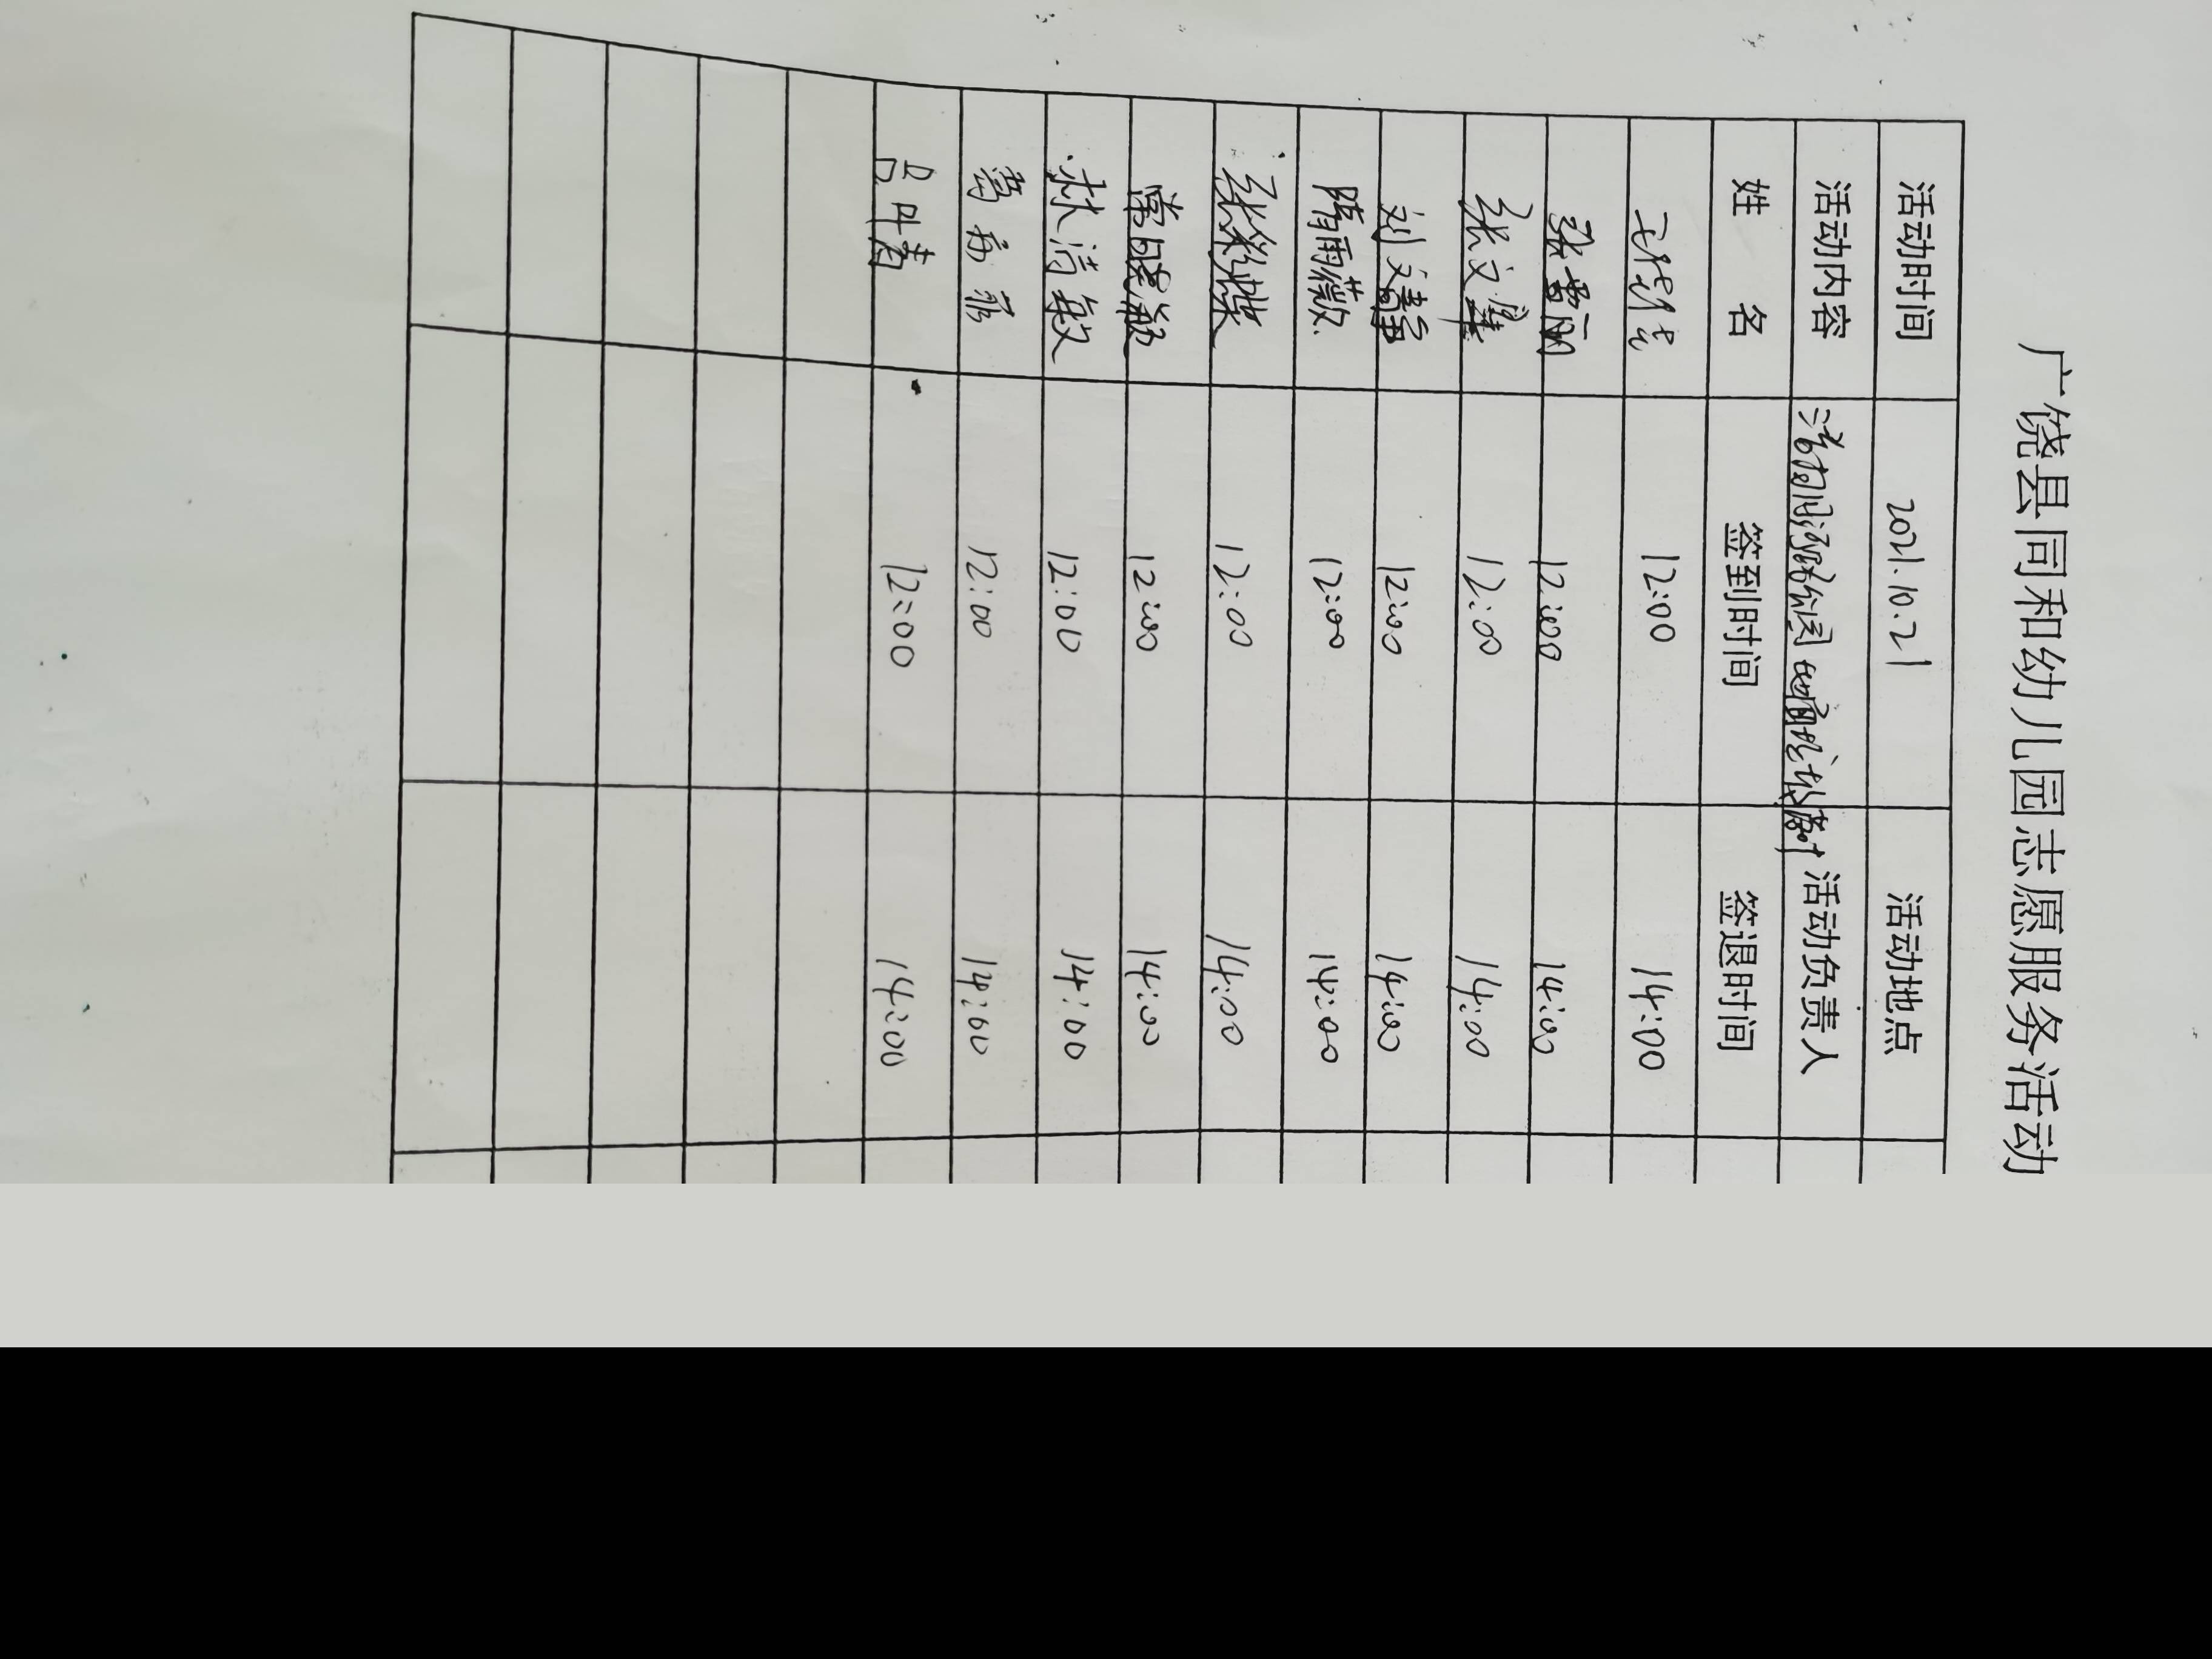 广饶县同和幼儿园志愿服务活动
活动时间 2021.10.21 活动地点
活动内容 活动负责人
姓 名 签到时间 签退时间
12:00 14:00
张雪丽 12:00 14:00
张文 12:00 14:00
刘文静 12:00 14:00
隋雨薇 12:00 14:00
张彩蝶 12:00 14:00
常晓 12:00 14:00
林清敏 12:00 14:00
12:00 14:00
吕叶青 12:00 14:00